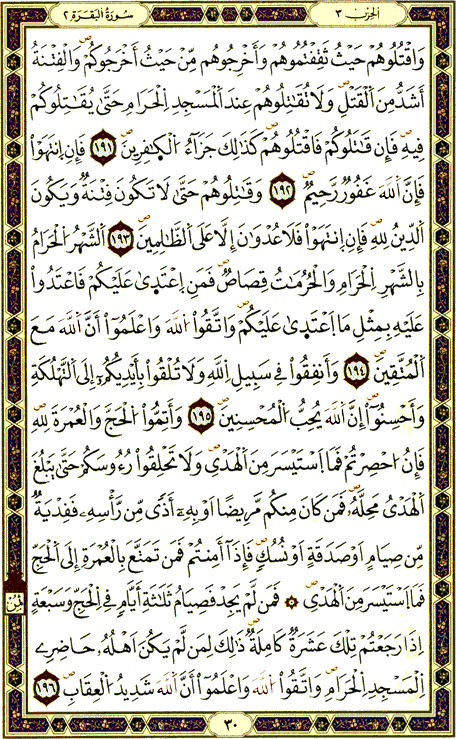 الحزب ٣
سورة البقرة ٢
وَاقْتُلُوهُمْ حَيْثُ ثَقِفْتُمُوهُمْ وَأَخْرِجُوهُم مِّنْ حَيْثُ أَخْرَجُوكُمْ ۖ وَالْفِتْنَةُ
أَشَدُّ مِنَ الْقَتْلِ ۖ وَلَا تُقَٰتِلُوهُمْ عِندَ الْمَسْجِدِ الْحَرَامِ حَتَّىٰ يُقَٰتِلُوكُمْ
فِيهِ ۖ فَإِن قَٰتَلُوكُمْ فَاقْتُلُوهُمْ ۖ كَذَٰلِكَ جَزَآءُ الْكَٰفِرِينَ ١٩١ فَإِنِ انتَهَوْاْ
فَإِنَّ اللَّهَ غَفُورٌ رَّحِيمٌ ١٩٢ وَقَٰتِلُوهُمْ حَتَّىٰ لَا تَكُونَ فِتْنَةٌ وَيَكُونَ
الدِّينُ لِلَّهِ ۖ فَإِنِ انتَهَوْاْ فَلَا عُدْوَٰنَ إِلَّا عَلَى الظَّٰلِمِينَ ١٩٣ الشَّهْرُ الْحَرَامُ
بِالشَّهْرِ الْحَرَامِ وَالْحُرُمَٰتُ قِصَاصٌ ۖ فَمَنِ اعْتَدَىٰ عَلَيْكُمْ فَاعْتَدُواْ
عَلَيْهِ بِمِثْلِ مَا اعْتَدَىٰ عَلَيْكُمْ ۖ وَاتَّقُواْ اللَّهَ وَاعْلَمُواْ أَنَّ اللَّهَ مَعَ
الْمُتَّقِينَ ١٩٤ وَأَنفِقُواْ فِي سَبِيلِ اللَّهِ وَلَا تُلْقُواْ بِأَيْدِيكُمْ إِلَى التَّهْلُكَةِ
وَأَحْسِنُوٓاْ ۖ إِنَّ اللَّهَ يُحِبُّ الْمُحْسِنِينَ ١٩٥ وَأَتِمُّواْ الْحَجَّ وَالْعُمْرَةَ لِلَّهِ
فَإِنْ أُحْصِرْتُمْ فَمَا اسْتَيْسَرَ مِنَ الْهَدْيِ ۖ وَلَا تَحْلِقُواْ رُءُوسَكُمْ حَتَّىٰ يَبْلُغَ
الْهَدْيُ مَحِلَّهُ ۖ فَمَن كَانَ مِنكُم مَّرِيضًا أَوْ بِهِۦٓ أَذًى مِّن رَّأْسِهِۦ فَفِدْيَةٌ
مِّن صِيَامٍ أَوْ صَدَقَةٍ أَوْ نُسُكٍ ۖ فَإِذَآ أَمِنتُمْ فَمَن تَمَتَّعَ بِالْعُمْرَةِ إِلَى الْحَجِّ
فَمَا اسْتَيْسَرَ مِنَ الْهَدْيِ ۖ فَمَن لَّمْ يَجِدْ فَصِيَامُ ثَلَٰثَةِ أَيَّامٍ فِي الْحَجِّ وَسَبْعَةٍ
إِذَا رَجَعْتُمْ ۖ تِلْكَ عَشَرَةٌ كَامِلَةٌ ۖ ذَٰلِكَ لِمَن لَّمْ يَكُنْ أَهْلُهُۥ حَاضِرِي
الْمَسْجِدِ الْحَرَامِ ۖ وَاتَّقُواْ اللَّهَ وَاعْلَمُوٓاْ أَنَّ اللَّهَ شَدِيدُ الْعِقَابِ ١٩٦
ثمن
٣٠